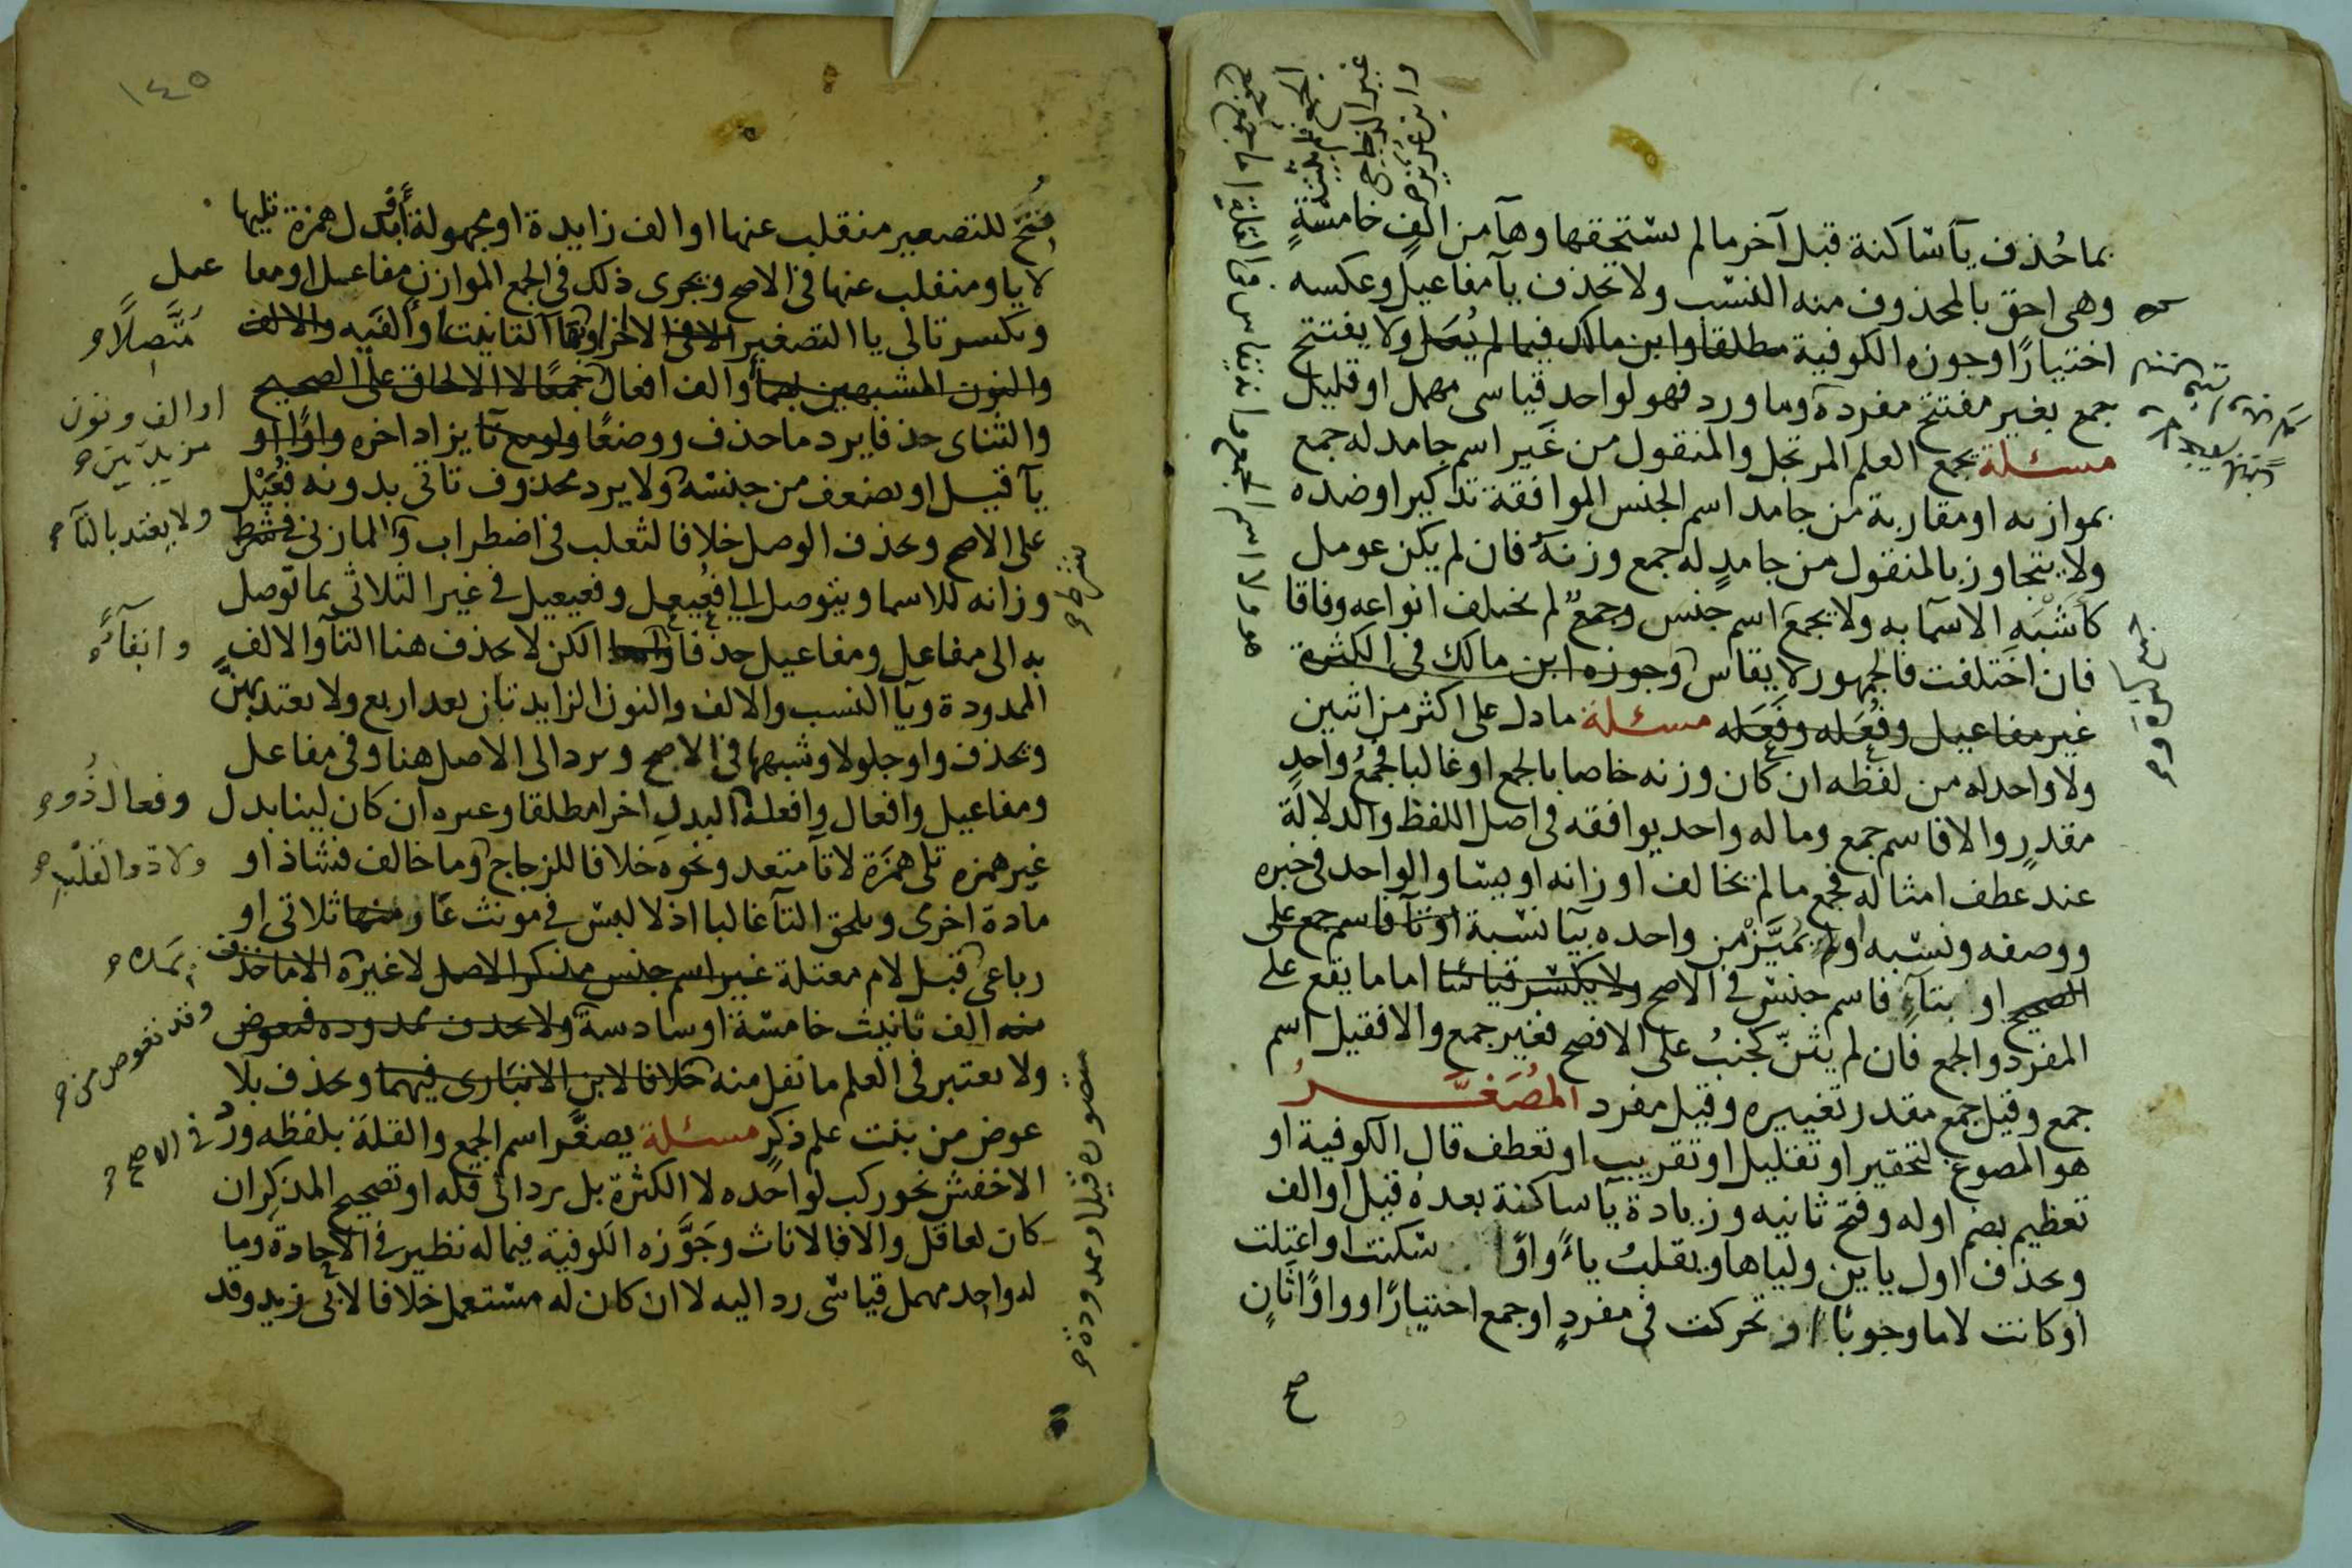 بما حُذف يآ ساكنة قبل آخر ما لم يستحقها وهآ من الف خامسةٍ
وهى احق بالمحذوف منه النسب ولا تحذف يآ مفاعيل وعكسه
اختيارًا وجوزه الكوفية مطلقا وابن مالك فيما لم يُعَل ولا يفتتح
جمع بغير مفتتح مفرده وما ورد فهو لواحد قياسى مهمل او قليل
مسئلة يجمع العلم المرتجل والمنقول من غير اسم جامد له جمع
بموازنه او مقاربه من جامد اسم الجنس الموافقة تذكيرا وضده
ولا يتجاوز بالمنقول من جامدٍ له جمع وزنه فان لم يكن عومل
كاشبه الاسما به ولا يجمع اسم جنس وجمعٌ لم يختلف انواعه وفاقا
فان اختلفت فالجمهور لا يقاس وجوزه ابن مالك فى الكثرة
غير مفاعيل وفُعَله وفَعَله مسئلة ما دل على اكثر من اثنين
ولا واحد له من لفظه ان كان وزنه خاصا بالجمع او غالبا فجمعُ واحدٍ
مقدرٍ والا فاسم جمع وما له واحد يوافقه فى اصل اللفظ والدلالة
عند عطف امثاله فجمع ما لم يخالف اوزانه او يساو الواحد فى خبره
ووصفه ونسبه او لم يُمَيَّزْ من واحده بيا نسبة او تآ فاسم جمع على
الصحيح او بتآءٍ فاسم جنس فى الاصح ولا يكسر قياسًا اما ما يقع على
المفرد والجمع فان لم يثنّ كجنبُ على الافصح فغير جمع والا فقيل اسم
جمع وقيل جمع مقدر تغييره وقيل مفرد المُصَغَّرُ
هو المصوغ لتحقير او تقليل او تقريب او تعطف قال الكوفية او
تعظيم بضم اوله وفتح ثانيه وزيادة يآ ساكنة بعده قيل او الف
وبحذف اول ياين ولياها ويقلبُ ياءً واوًا سكنت او اعتلت
او كانت لاما وجوبًا او تحركت فى مفردٍ او جمع اختيارًا وواوًا ثانٍ
غير الزجاجى
وابن عزيز
صح
١٤٥
فُتحَ للتصغير منقلب عنها او الف زايدة او مجهولة او بدل همزة تليها
لا يا ومنقلب عنها فى الاصح ويجرى ذلك فى الجمع الموازن مفاعل او مفاعيل
وتكسر تالى يا التصغير الا فى الاخر او تا التانيث او الفيه والالف
والنون المشبهين بهما والف افعال جمعًا لا الالحاق على الصحيح
والثناى حذفا يرد ما حذف ووضعًا ولو مع تا يزاد اخره واوًا او
يآ قيل او يضعف من جنسه ولا يرد محذوف تاتى بدونه فُعَيْل
على الاصح وبحذف الوصل خلافا لثعلب فى اضطراب والمازنى فى شرط
وزانه للاسما ويتوصل الى فُعَيعِل وفعيعيل فى غير الثلاثى بما توصل
به الى مفاعل ومفاعيل حذفا لكن لا يحذف هنا التآ والالف
الممدودة ويآ النسب والالف والنون الزايدتان بعد اربع ولا يعتد بهنَّ
وتحذف واو جلولا وشبهها فى الاصح ويرد الى الاصل هنا وفى مفاعل
ومفاعيل وافعال وافعلة البدل اخرا مطلقا وغيره ان كان لينا بدل
غير همزه تلى همزة لا تآ متعد ونحوه خلافا للزجاج وما خالف فشاذ او
مادة اخرى ويلحق التآ غالبا اذ لا لبس فى مونث عار منها ثلاثى او
رباعى قبل لام معتلة غير اسم جنس مذكر الاصل لا غيره الا ما حذف
منه الف تانيث خامسة او سادسة ولا تحذف ممدوده فيعوض
ولا يعتبر فى العلم ما نقل منه خلافا لابن الانبارى فيهما وبحذف بلا
عوض من بنت علم ذكرٍ مسئلة يصغَّر اسم الجمع والقلة بلفظه وردَّ
الاخفش نحو ركب لواحده لا الكثرة بل يرد الى قله او تصحيح المذكر ان
كان لعاقل والا فالاناث وجَوَّزه الكوفية فيما له نظير فى الاحاد وما
له واحد مهمل قياسى رد اليه لا ان كان له مستعمل خلافا لابى زيد وقد
متصلًا
او الف ونون
مزيدتين
ولا يعتد بالتآ
شرط
وابقآءً
وفعال
ولا ذو القلب
فى الاصح
مقصوره قيل او ممدودة